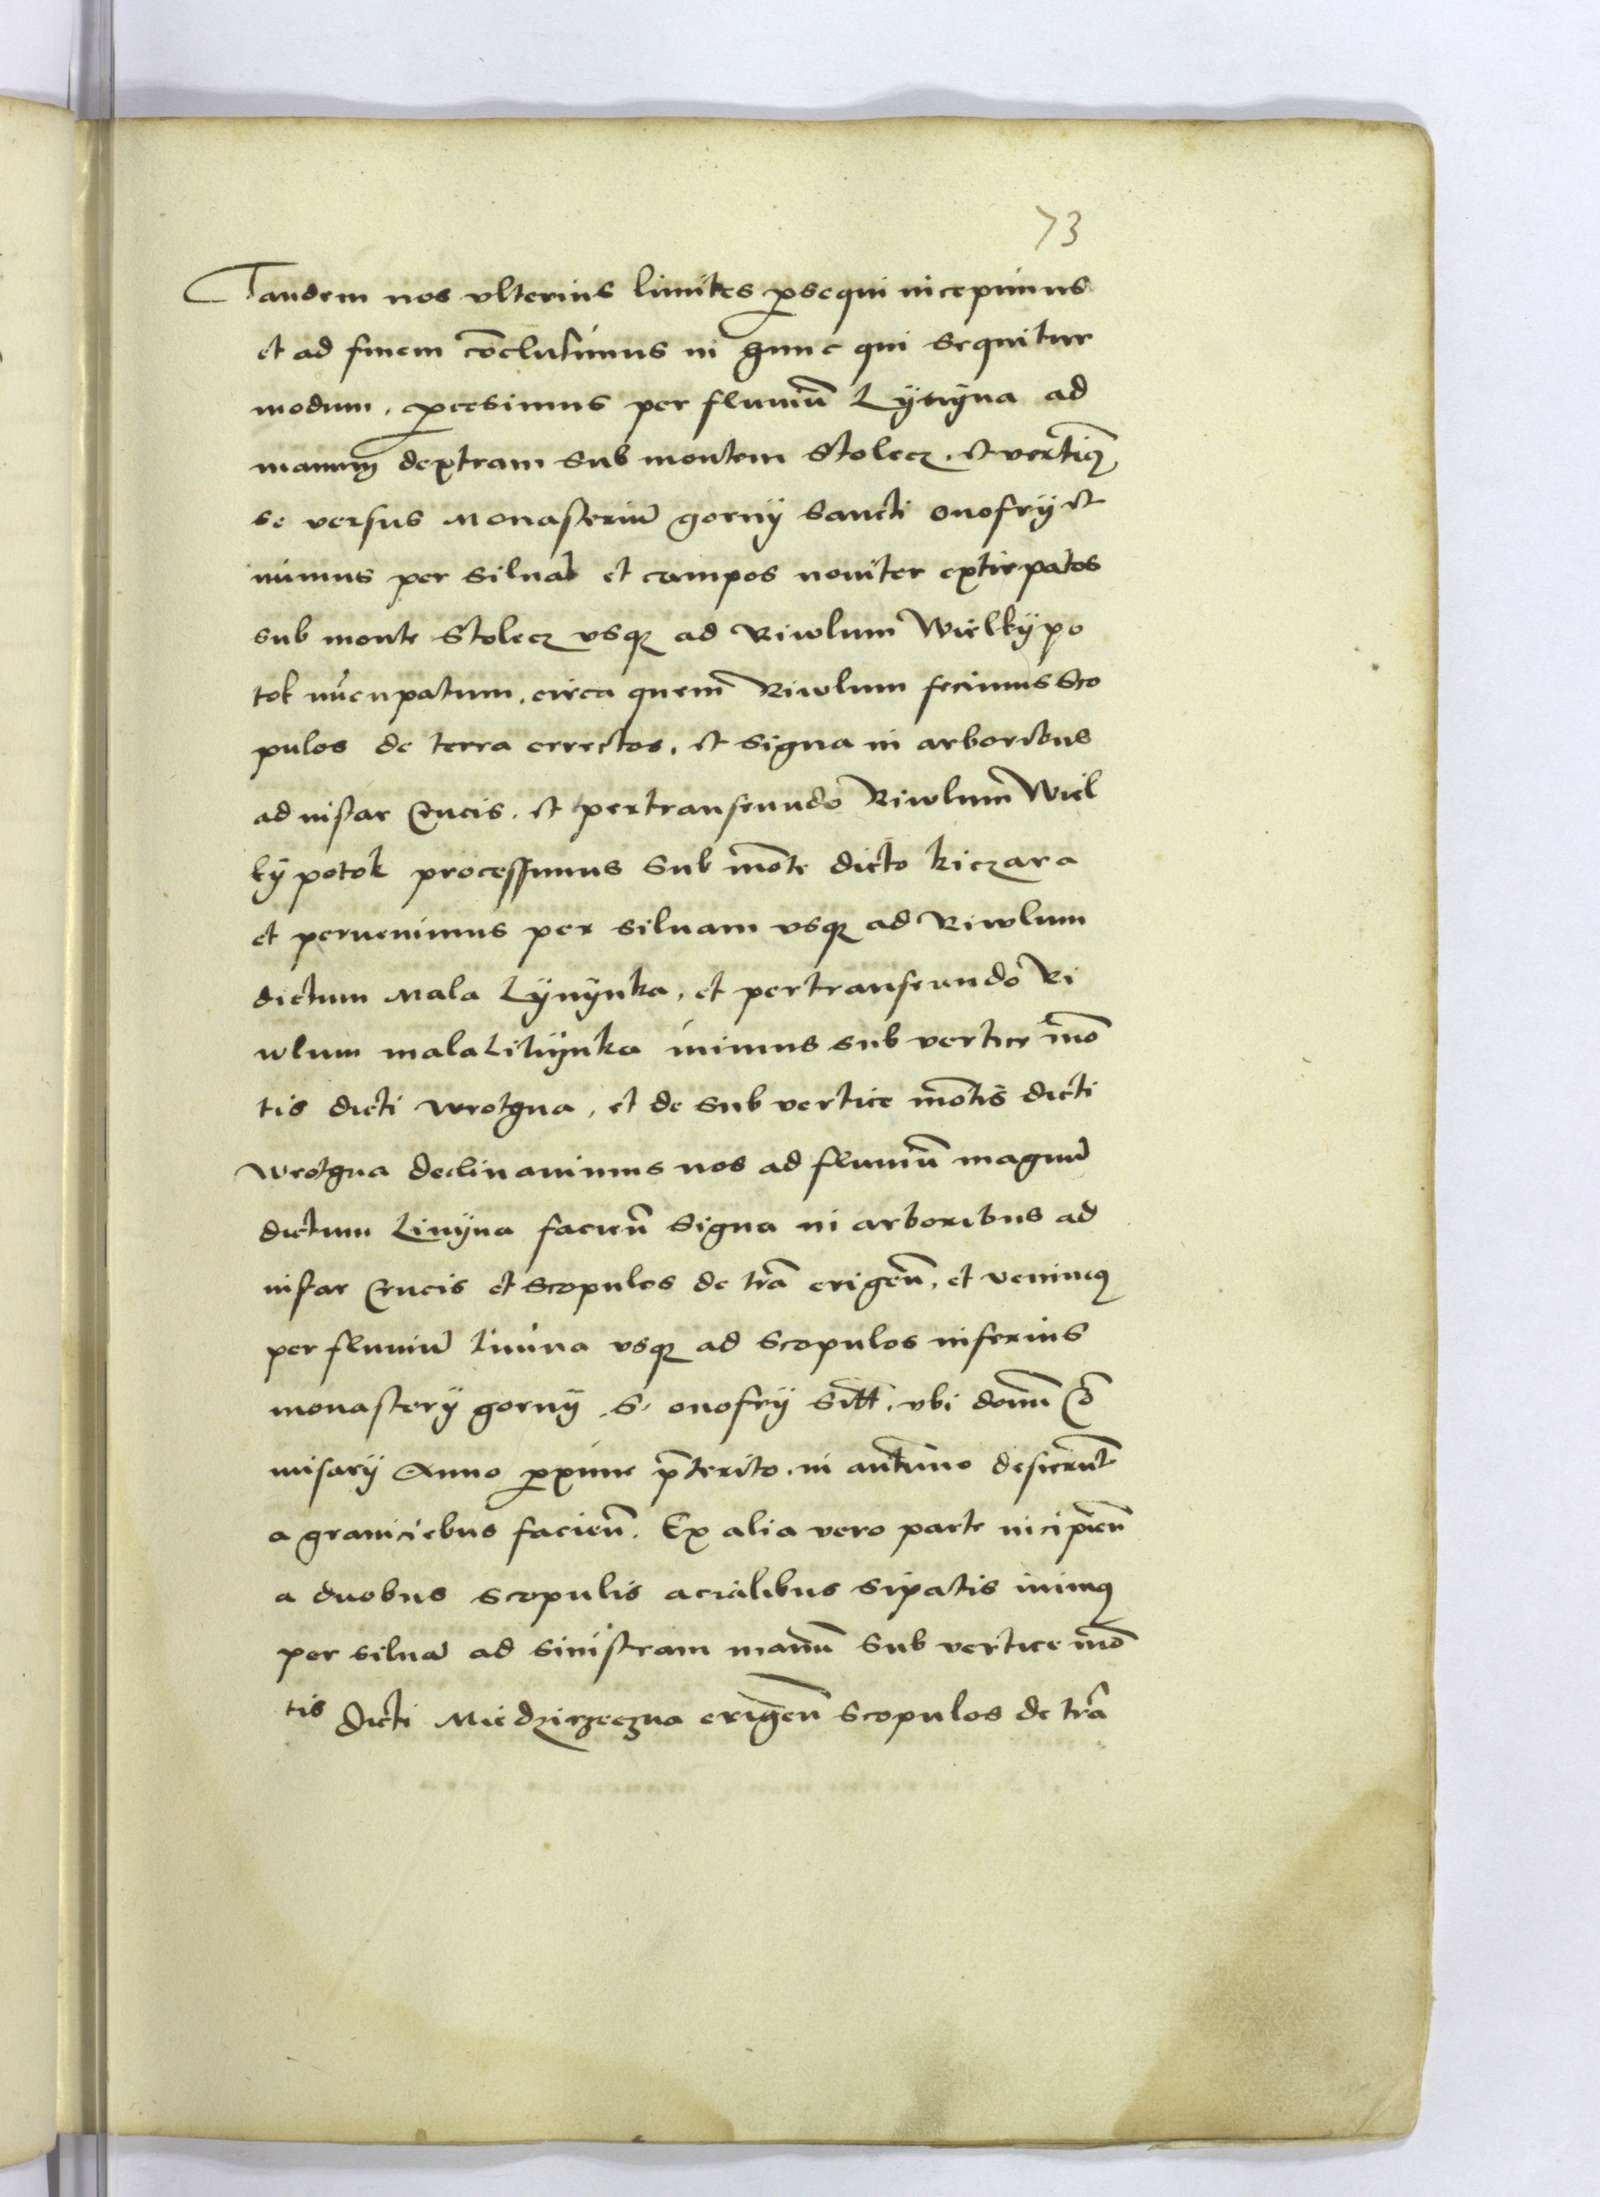 73
Tandem nos vlterius limites ꝓsequi incepimus
et ad finem cōclusimus in hunc qui sequitur
modum, ꝓcesimus per fluuiū Lynÿna ad
manum dextram sub montem Stolecz, et vertimꝰ
se versus Monasteriū gornÿ Sancti onofrÿ et
iuimus per siluas et campos nouiter extirpatos
sub monte Stolecz vsqꝫ ad Riwlum Wielkÿ po
tok nūcupatum, circa quem Riwlum fecimus Sco
pulos de terra errectos, et signa in arboribus
ad instar Crucis, et pertranseundo Riwlum Wiel
kÿ potok processimus sub mōte dicto kiczara
et peruenimus per siluam vsqꝫ ad Riwlum
dictum Mala Lÿnÿnka, et pertranseundo Ri
wlum mala Linÿnka iuimus sub vertice mō
tis dicti wrothna, et de sub vertice mōtis dicti
wrothna declinauimus nos ad fluuiū magnū
dictum Linÿna facieñ signa in arboribus ad
instar Crucis et scopulos de trā erigeñ, et venimꝰ
per fluuiū linina vsqꝫ ad scopulos inferius
monasterÿ gornÿ S. onofrÿ sitt, vbi domī Cō
misarÿ Anno ꝓxime p̄terito in autūno desierūt
a graniciebus facieñ. Ex alia vero parte incipieñ
a duobus scopulis acialibus sipatis iuimꝰ
per siluā ad sinistram manū sub vertice mō
tis dicti Miedzirzeczna erigeñ scopulos de trā